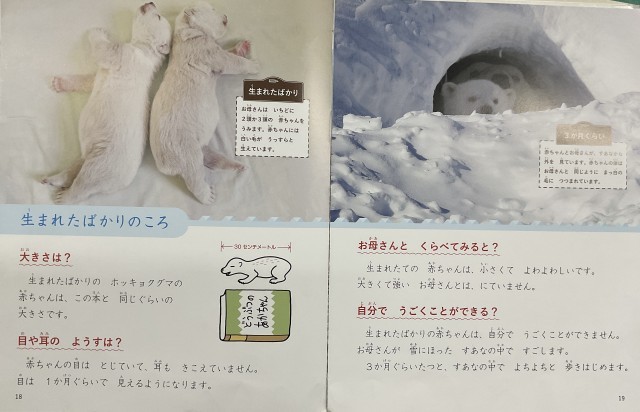 生まれたばかり
お母さんは いちどに
2頭か3頭の 赤ちゃんを
うみます。赤ちゃんには
白い毛が うっすらと
生えています。
生まれたばかりのころ
大きさは?
生まれたばかりの ホッキョクグマの
赤ちゃんは、この本と 同じぐらいの
大きさです。
30センチメートル
目や耳の ようすは?
赤ちゃんの目は とじていて、耳も きこえていません。
目は 1か月ぐらいで 見えるようになります。
18
3か月ぐらい
赤ちゃんとお母さんが、すあなから
外を 見ています。赤ちゃんの体は
お母さんと 同じように まっ白の
毛に つつまれています。
お母さんと くらべてみると?
生まれたての 赤ちゃんは、小さくて よわよわしいです。
大きくて強い お母さんとは、にていません。
自分で うごくことができる?
生まれたばかりの赤ちゃんは、自分で うごくことができません。
お母さんが 雪にほった すあなの中で すごします。
3か月ぐらいたつと、すあなの中で よちよちと 歩きはじめます。
19